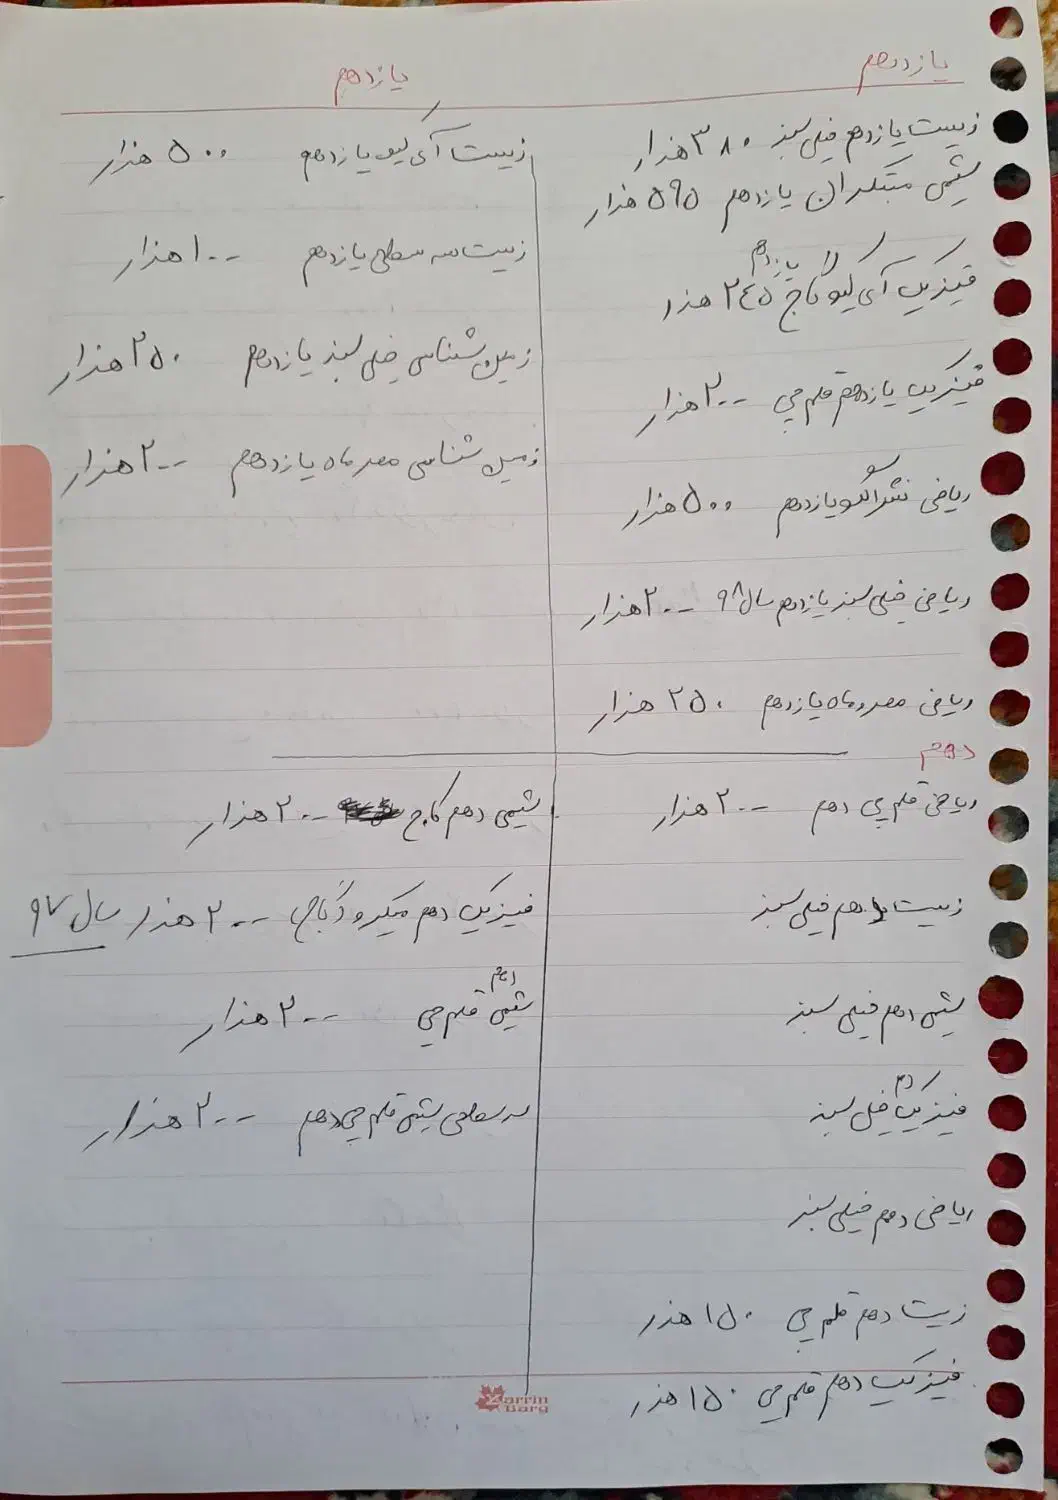 یازدهم
زیست یازدهم خیلی سبز ۳۸۰ هزار
شیمی مبتکران یازدهم ۵۹۵ هزار
فیزیک آی کیو گاج یازدهم ۲۴۵ هزار
فیزیک یازدهم قلم چی ۲۰۰ هزار
ریاضی نشر الگو یازدهم ۵۰۰ هزار
ریاضی خیلی سبز یازدهم سال ۹۸ ۲۰۰ هزار
ریاضی مهروماه یازدهم ۲۵۰ هزار
یازدهم
زیست آی کیو یازدهم ۵۰۰ هزار
زیست سه سطحی یازدهم ۱۰۰ هزار
زمین شناسی خیلی سبز یازدهم ۲۵۰ هزار
زمین شناسی مهر ماه یازدهم ۲۰۰ هزار
دهم
ریاضی قلم چی دهم ۲۰۰ هزار
زیست دهم خیلی سبز
شیمی دهم خیلی سبز
فیزیک دهم خیلی سبز
ریاضی دهم خیلی سبز
زیست دهم قلم چی ۱۵۰ هزار
فیزیک دهم قلم چی ۱۵۰ هزار
شیمی دهم گاج ۲۰۰ هزار
فیزیک دهم میکرو گاج ۲۰۰ هزار سال ۹۷
شیمی دهم قلم چی ۲۰۰ هزار
سه سطحی شیمی قلم چی دهم ۲۰۰ هزار
Zarrin Barg